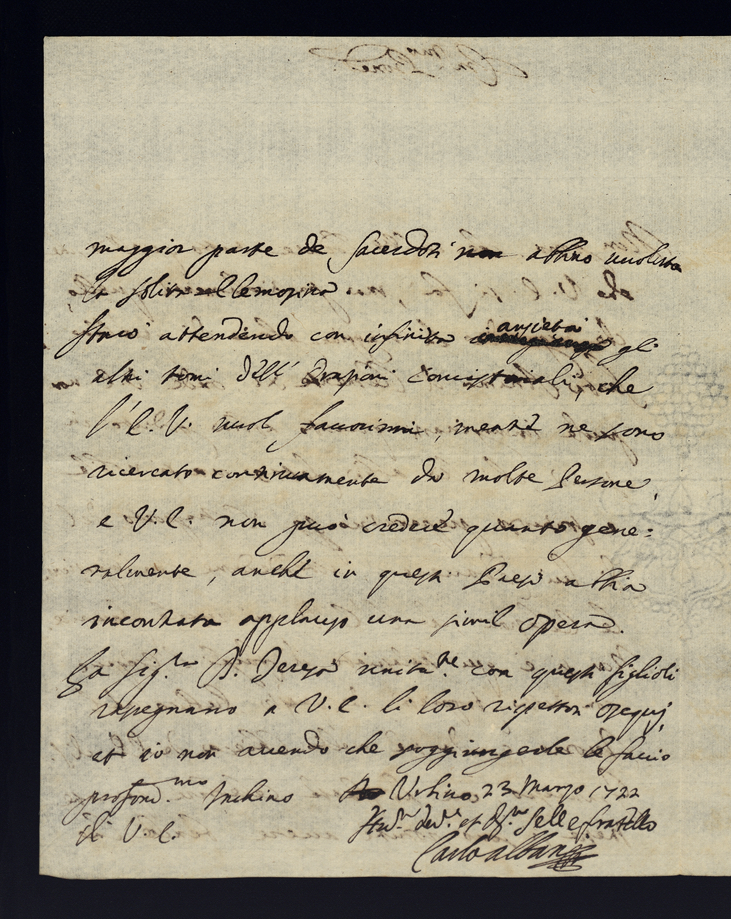 maggior parte de Sacerdoti non abbino uoluta
la solita Elemosina
Starò attendendo con infinita ansietà gli
altri tomi dell' Orazioni Concistoriali, che
l'E. V. uuol fauorirmi, mentre ne sono
ricercato continuamente da molte Persone,
e V. E. non può credere quanto gene=
ralmente, anche in questi Paesi abbia
incontrato applauso una simil opera.
La Sig.ra D. Teresa unita.te con questi figlioli
rasegnano a V. E. li loro rispettosi ossequj,
et io non auendo che soggiungerle le faccio
profond.mo Inchino Urbino, 23 Marzo 1722
di V. E. et fratello
Carlo Albani